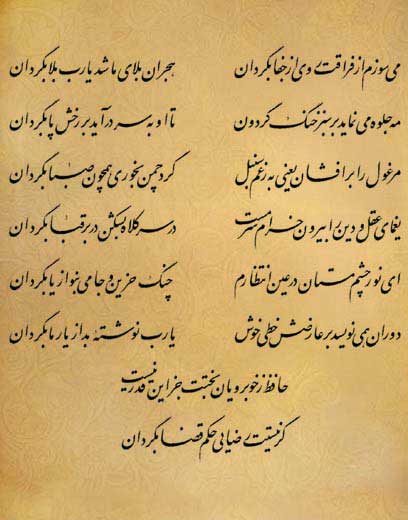 می سوزم از فراقت روی از جفا بگردان هجران بلای ما شد یا رب بلا بگردان
مه جلوه می نماید بر سبز خنگ گردون تا او به سر در آید بر رخش پا بگردان
مرغول را برافشان یعنی به رغم سنبل گرد چمن بخوری همچون صبا بگردان
یغمای عقل و دین را بیرون خرام سرمست در سر کلاه بشکن در بر قبا بگردان
ای نور چشم مستان در عین انتظارم چنگ حزین و جامی بنواز یا بگردان
دوران همی نویسد بر عارضش خطی خوش یا رب نوشتهٔ بد از یار ما بگردان
حافظ ز خوبرویان بختت جز این قدر نیست
گر نیستت رضایی حکم قضا بگردان